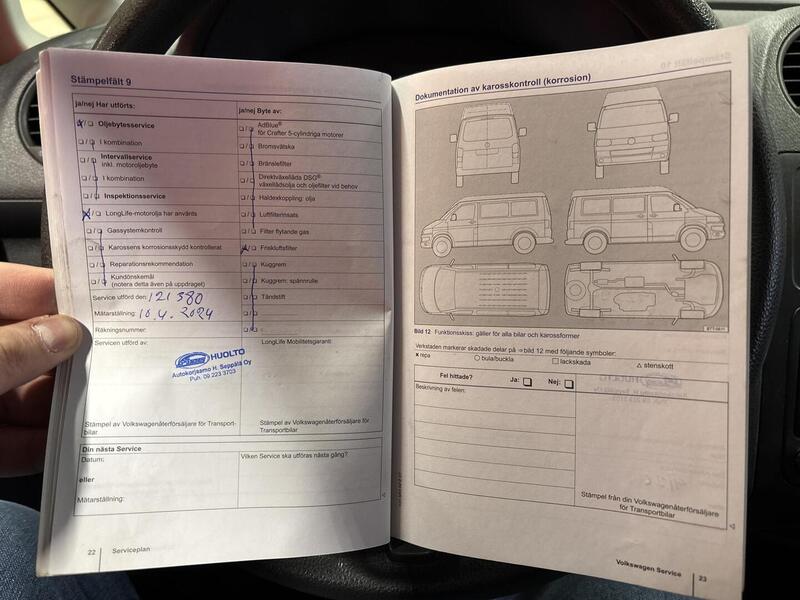 Stämpelfält 9
ja/nej Har utförts:
ja/nej Byte av:
Oljebytesservice
I kombination
Intervallservice
inkl. motoroljebyte
I kombination
Inspektionsservice
LongLife-motorolja har använts
Gassystemkontroll
Karossens korrosionsskydd kontrollerat
Reparationsrekommendation
Kundönskemål
(notera detta även på uppdraget)
AdBlue®
för Crafter 5-cylindriga motorer
Bromsvätska
Bränslefilter
Direktväxellåda DSG®
växellådsolja och oljefilter vid behov
Haldexkoppling: olja
Luftfilterinsats
Filter flytande gas
Friskluftsfilter
Kuggrem
Kuggrem: spännrulle
Tändstift
Service utförd den: 121 380
Mätarställning: 10.4.2024
Räkningsnummer:
Servicen utförd av:
LongLife Mobilitetsgaranti:
HUOLTO
Autokorjaamo H. Seppälä Oy
Puh. 09 223 3703
Stämpel av Volkswagenåterförsäljare för Transport-
bilar
Stämpel av Volkswagenåterförsäljare för
Transportbilar
Din nästa Service
Datum:
Vilken Service ska utföras nästa gång?
eller
Mätarställning:
22 Serviceplan
Dokumentation av karosskontroll (korrosion)
Bild 12 Funktionsskiss: gäller för alla bilar och karossformer
Verkstaden markerar skadade delar på ⇒ bild 12 med följande symboler:
× repa ○ bula/buckla □ lackskada △ stenskott
Fel hittade? Ja: Nej:
Beskrivning av felen:
Stämpel från din Volkswagenåterförsäljare
för Transportbilar
Volkswagen Service 23